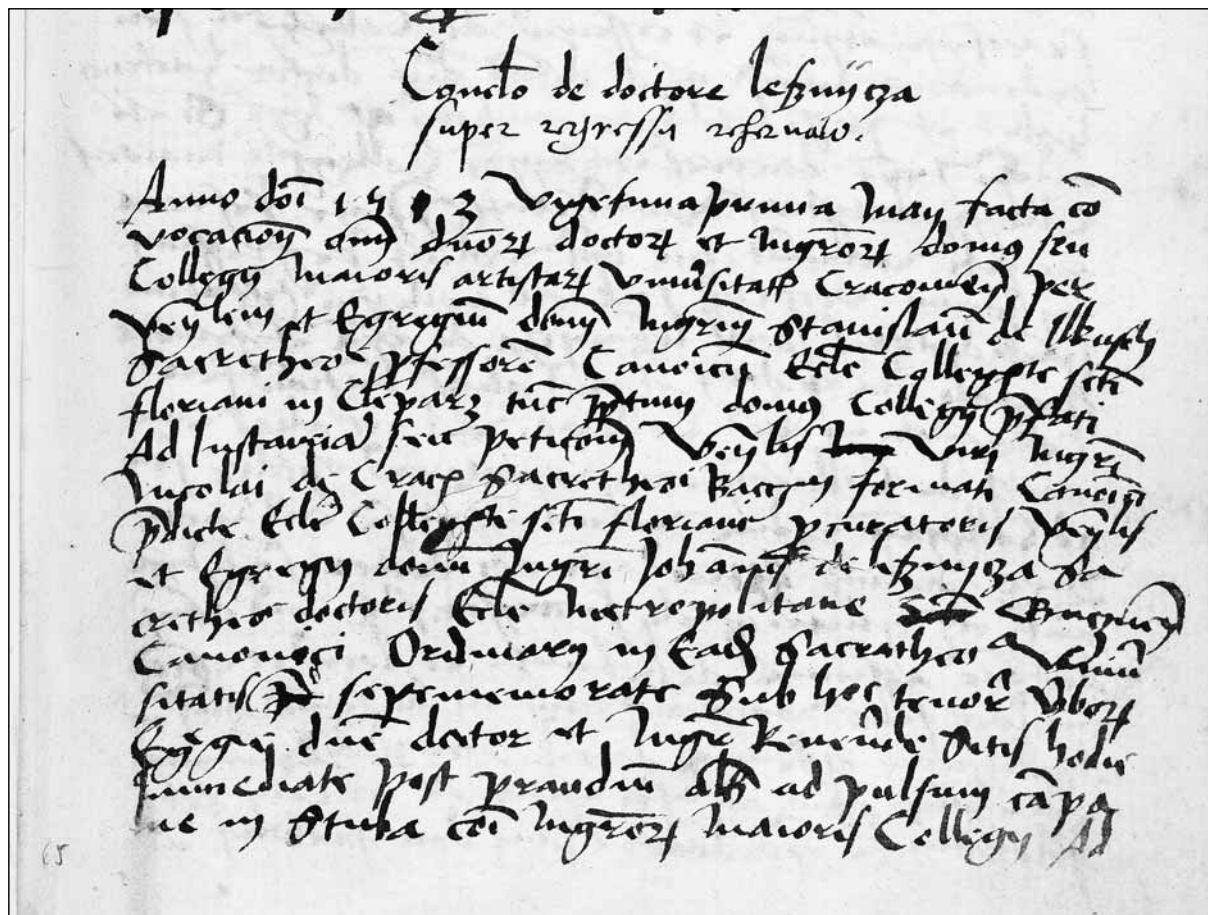 Conclo de doctore lesznÿcza
super regressu reservato.
Anno doi 1513 vigesima prima Maÿ facta co
vocacion dnor doctor et mgror domus seu
Collegÿ maioris artistar universitatis Cracovien per
venlem et Egregium dnm mgrm Stanislaum de Ilkusch
Sacretheo professore Canoicu Ecle Collegiate scti
floriani in Cleparz tuc pptum domus Collegÿ pfati
Ad Instancia seu peticoem venlis viri mgri
Nicolai de Crac Sacretheoi Baccÿ formati Canoici
pdicte Ecle Collegiate scti floriani pcuratoris venlis
et Egregÿ domi mgri Johannis de lesznÿcza Sa
cretheo doctoris Ecle metropolitane
Canonici Ordinarÿ in Ead Sacratheo univer
sitatis sepememorate Sub hoc tenore verbor
Egregie dne doctor et mgr Reverende Sitis hodie
immediate post prandium als ad pulsum campa
ne in Stuba coi mgror maioris Collegÿ Ad
65